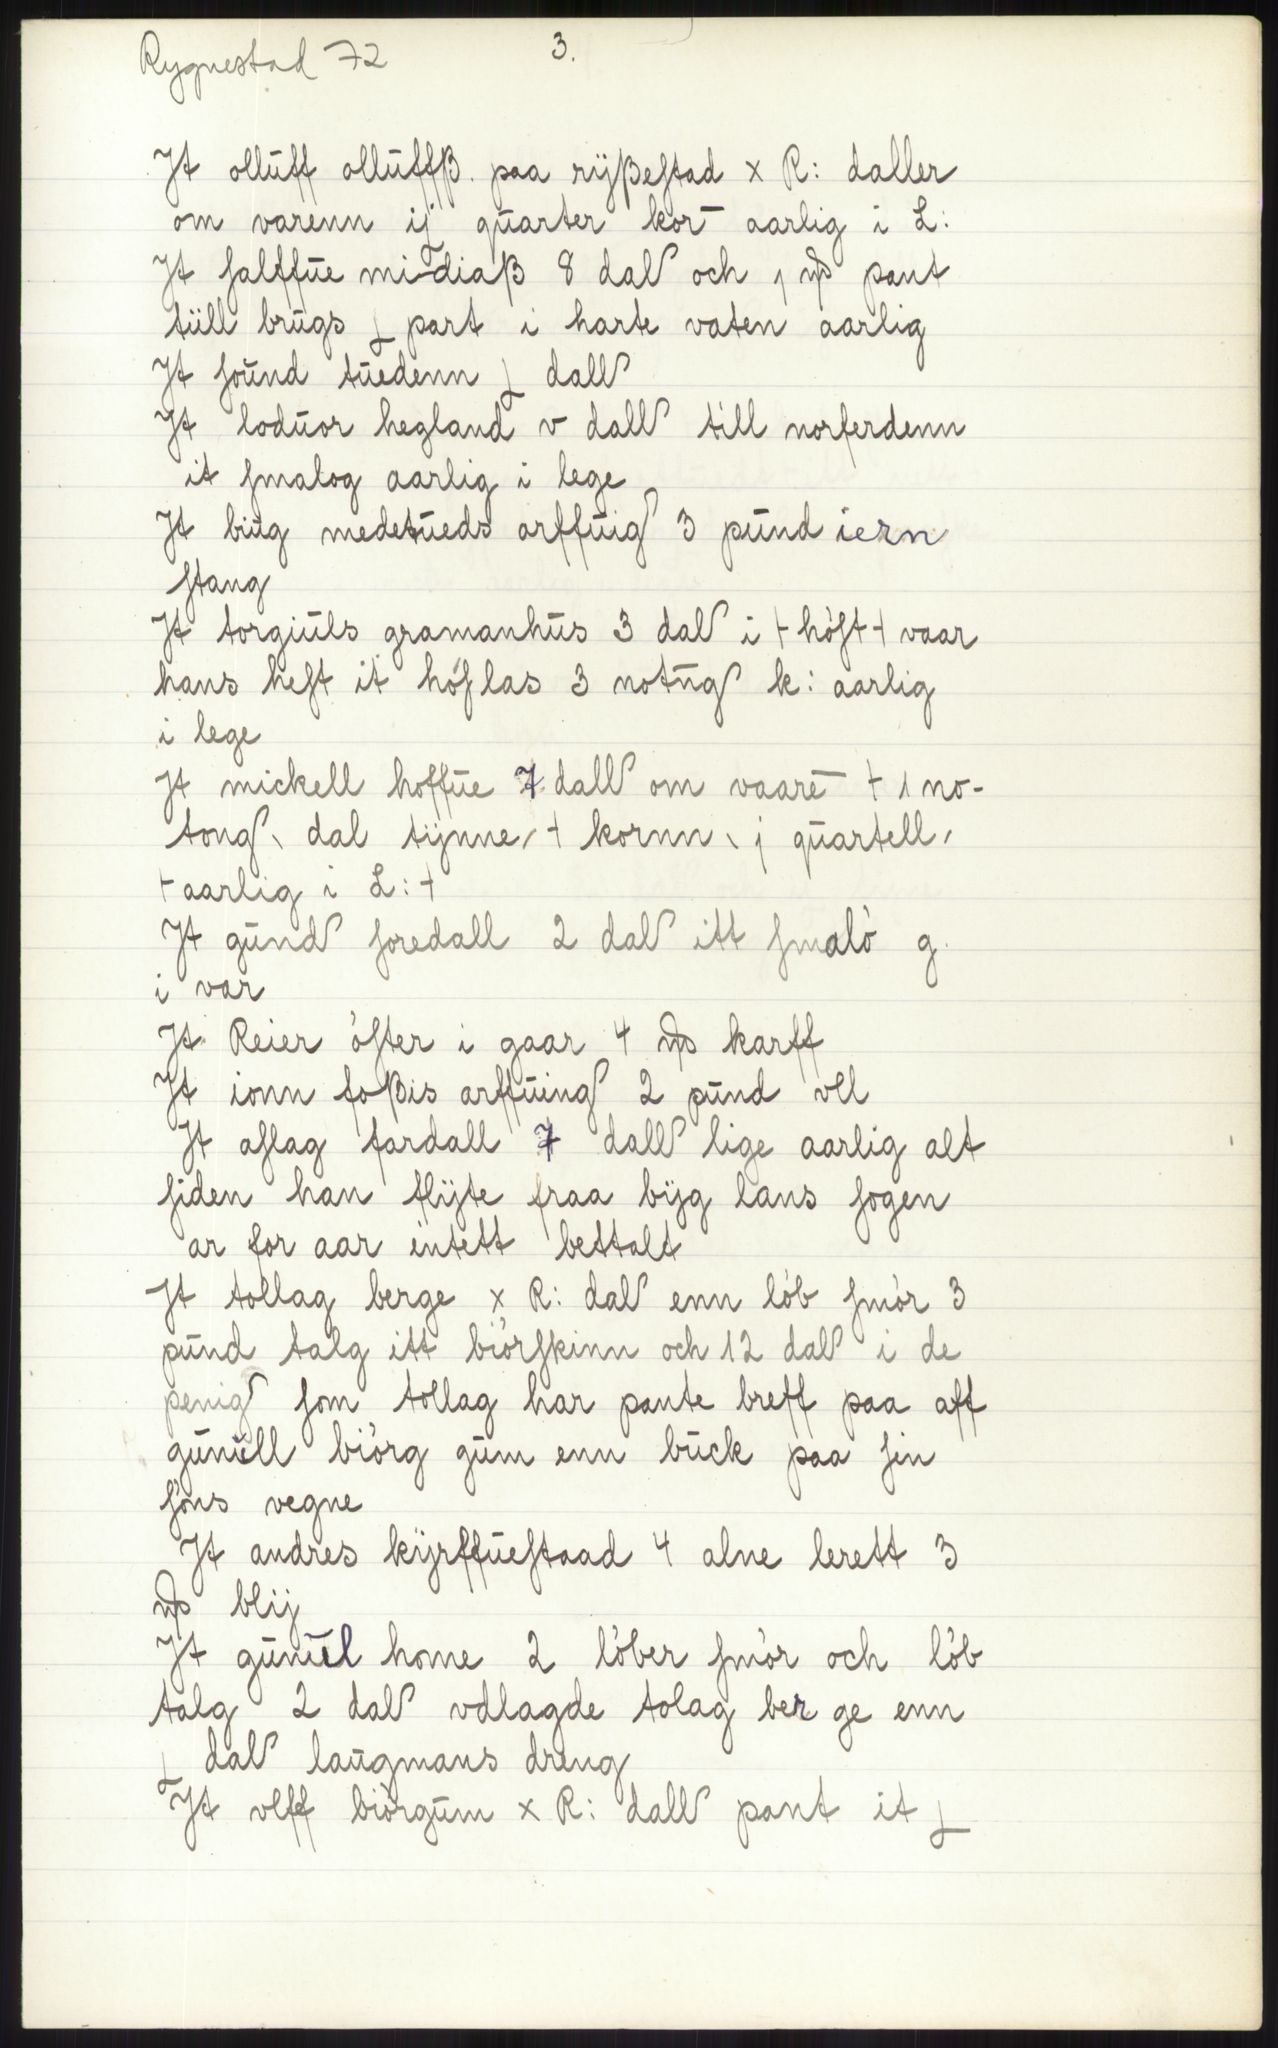 Rygnestad 72
3.
It olluff olluffß. paa rÿßestad x R: daller
om varenn ij quarter kor̄ aarlig i L:
It salffue mi-diaß 8 dal och 1 pant
tüll brugs part i harte vaten aarlig
It sound tuedenn dall
It loduor hegland v dall till norferdenn
it smalog aarlig i lege
It biug medetueds arffuig 3 pund iern
stang
It torgiuls gramanhus 3 dal i + høst + vaar
hans hest it høslas 3 notug k: aarlig
i lege
It mickell hoffue 7 dall om vaare + 1 no-
tong, dal tÿnne, + kornn, j quartell,
+ aarlig i L: +
It gund foredall 2 dal itt smalò g.
i var
It Reier òster i gaar 4 karff
It ionn foßis arffuing 2 pund vll
It aslag fardall 7 dall lige aarlig alt
siden han flÿte fraa bÿg lans sogen
ar for aar intett bettalt
It tollag berge x R: dal enn lòb smòr 3
pund talg itt biòrskinn och 12 dal i de
penig som tollag har pante breff paa aff
gunull biòrg gum enn buck paa sin
sòns vegne
It andres kÿrffuestaad 4 alne lerett 3
blij
It gunuel home 2 lòber smòr och lòb
talg 2 dal vdlagde tolag ber ge enn
dal laugmans dreng
It vlff biòrgum x R: dall pant it